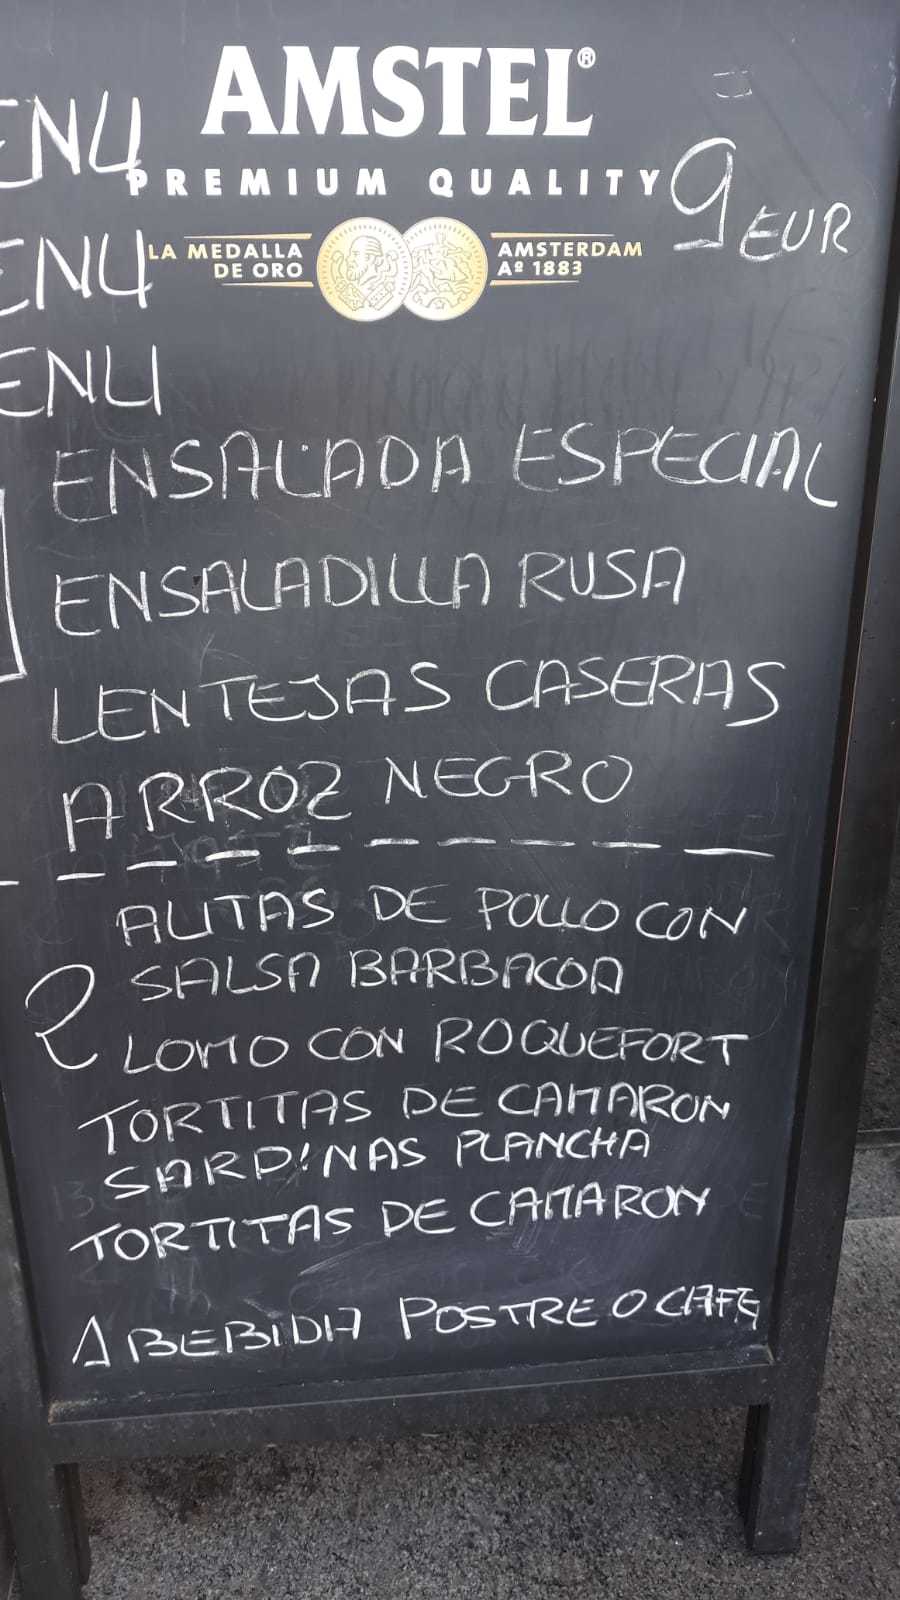 AMSTEL®
PREMIUM QUALITY
LA MEDALLA DE ORO
AMSTERDAM Aº 1883
9 EUR
ENU
ENU
ENU
ENSALADA ESPECIAL
ENSALADILLA RUSA
LENTEJAS CASERAS
ARROZ NEGRO
ALITAS DE POLLO CON
SALSA BARBACOA
LOMO CON ROQUEFORT
TORTITAS DE CAMARON
SARDINAS PLANCHA
TORTITAS DE CAMARON
1 BEBIDA POSTRE O CAFE